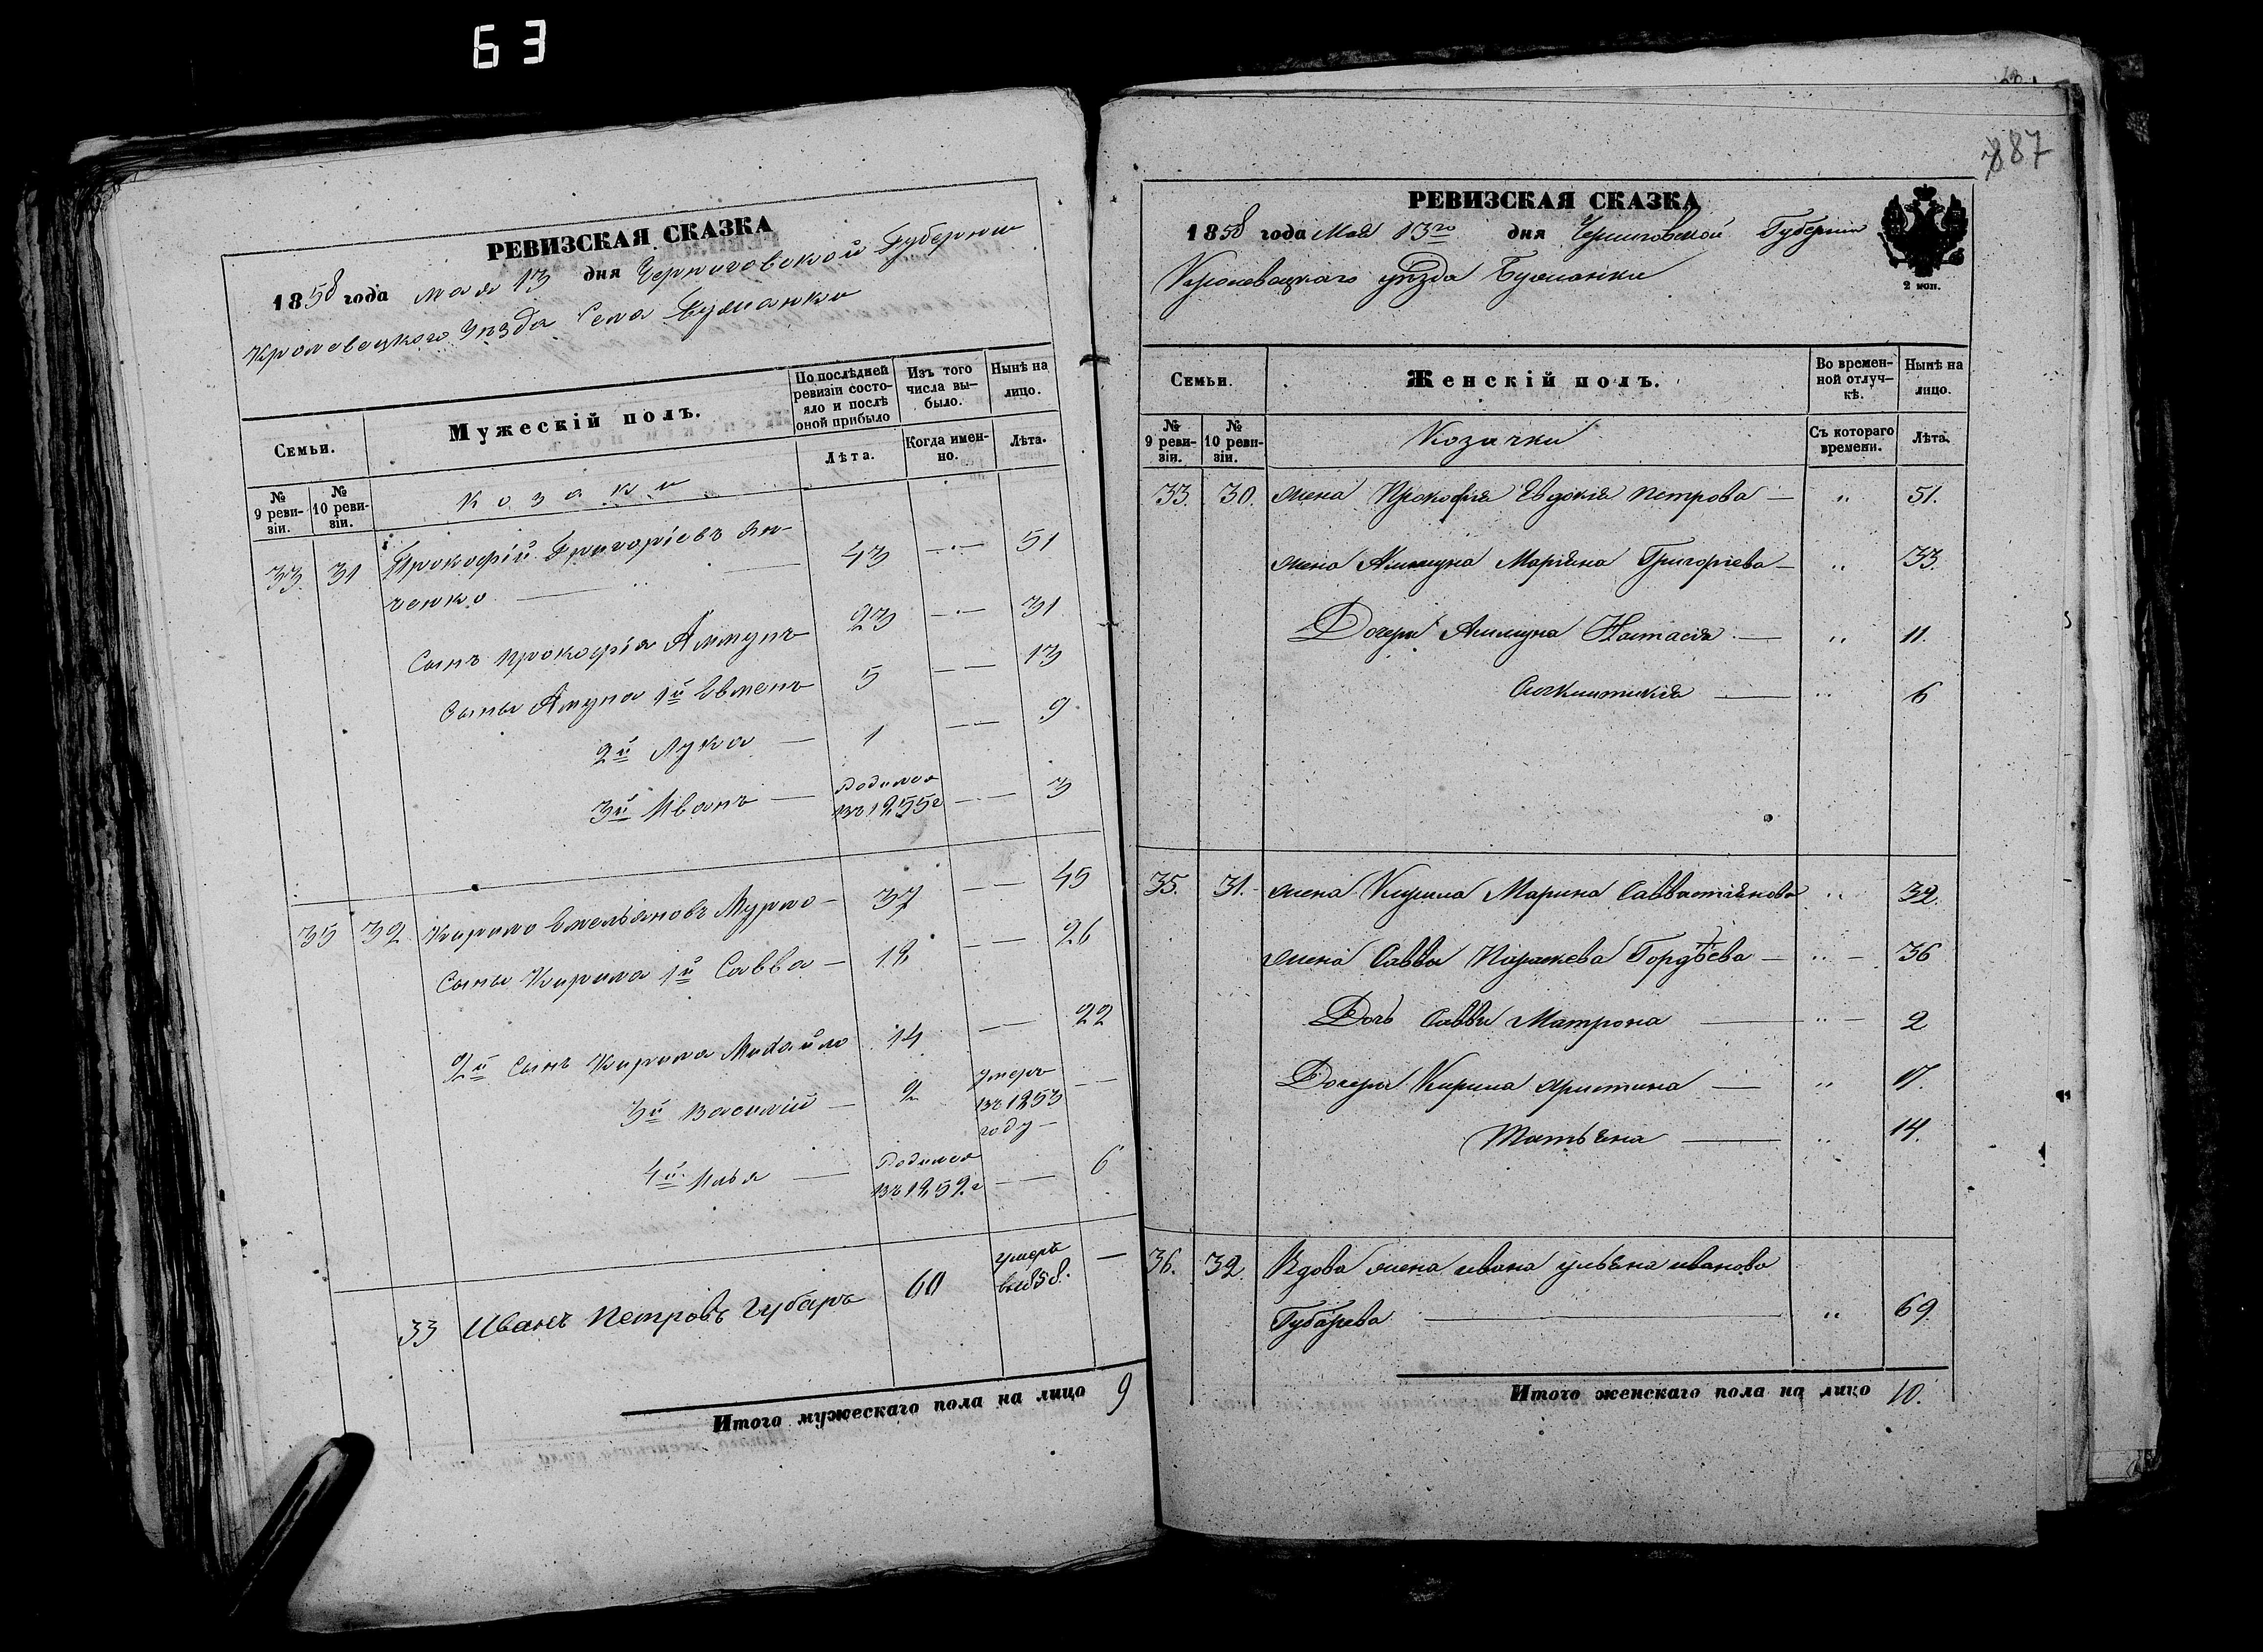 63
РЕВИЗСКАЯ СКАЗКА
1858 года мая 13 дня Черниговской Губернии
Кролевецкого Уѣзда Села Буманки
Семьи.
Мужескій полъ.
По послѣдней ревизіи состояло и послѣ оной прибыло
Изъ того числа выбыло.
Нынѣ на лицо.
Лѣта.
Когда именно.
Лѣта.
№ 9 ревизіи.
№ 10 ревизіи.
Козаки
33 31 Прокофій Григоріевъ Ян- 43 — 51
ченко
Сынъ Прокофія Аммунъ 23 — 31
Сыны Амуна 1й Евменъ 5 — 13
2й Лука — 1 — 9
3й Иванъ — Родился въ 1855 г — 3
35 32 Кирило Емельяновъ Мурло — 37 — 45
Сыны Кирила 1й Савва — 18 — 26
2й Сынъ Кирила Михайло 14 — 22
3й Василій — 2 умеръ въ 1853 году — —
4й Илья — Родился въ 1852 г — 6
33 Иванъ Петровъ Губарь 60 умеръ в 1858. —
Итого мужескаго пола на лицо 9
887
РЕВИЗСКАЯ СКАЗКА
1858 года Мая 13го дня Черниговской Губерніи
Кролевецкаго уѣзда Буманки
2 коп.
Семьи.
Женскій полъ.
Во временной отлучкѣ.
Нынѣ на лицо.
№ 9 ревизіи.
№ 10 ревизіи.
Козачки
Съ котораго времени.
Лѣта.
33. 30. жена Прокофія Евдокія Петрова — " 51.
жена Аммуна Маріяна Григоріева — " 33.
Дочери Аммуна Настасія — " 11.
— " 6
35. 31. жена Кирила Марина Саввастіянова " 32.
жена Саввы Параскева Гордѣева — " — 36
Дочь Саввы Матрона — " — 2
Дочери Кирила христина — " 17.
Татьяна — " 14.
36. 32. Вдова жена ивана ульяна иванова
Губарева — " 69.
Итого женскаго пола на лицо 10.